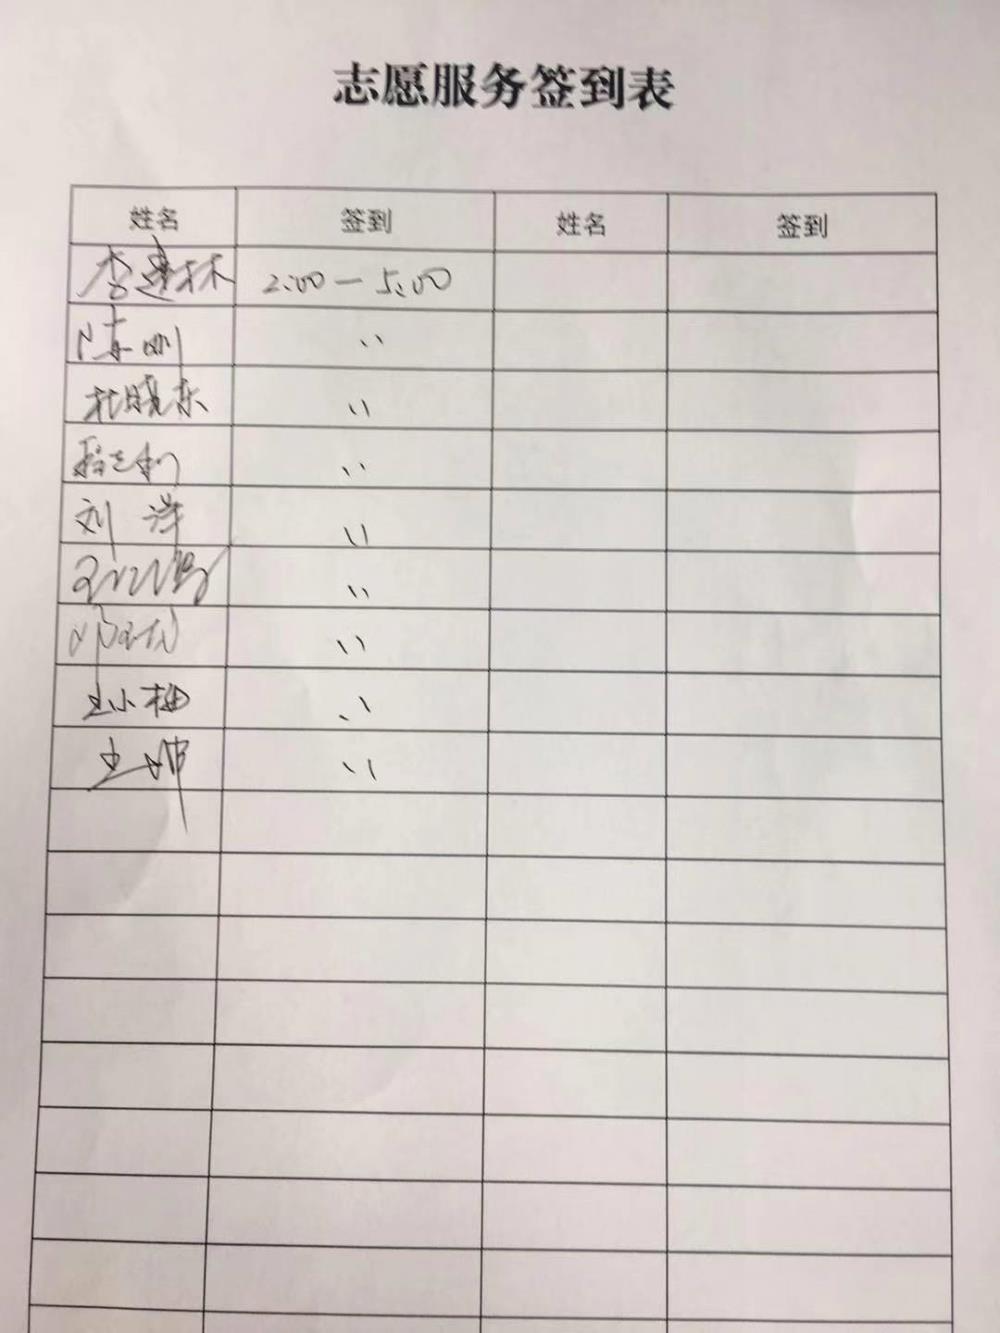 志愿服务签到表
姓名 签到 姓名 签到
李建林 2:00—5:00
陈刚 〃
杜晓东 〃
〃
刘洋 〃
〃
〃
王小梅 〃
王坤 〃